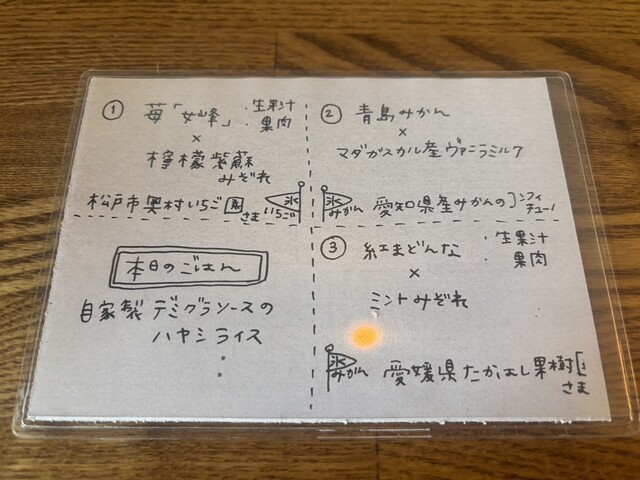 ① 苺「女峰」 ・生果汁
・果肉
×
檸檬紫蘇
みぞれ
松戸市奥村いちご園さま
氷 いちご
② 青島みかん
×
マダガスカル産ヴァニラミルク
氷 みかん
愛知県産みかんのコンフィチュー
本日のごはん
自家製 デミグラソースの
ハヤシライス
③ 紅まどんな ・生果汁
・果肉
×
ミントみぞれ
氷 みかん
愛媛県たかはし果樹園さま